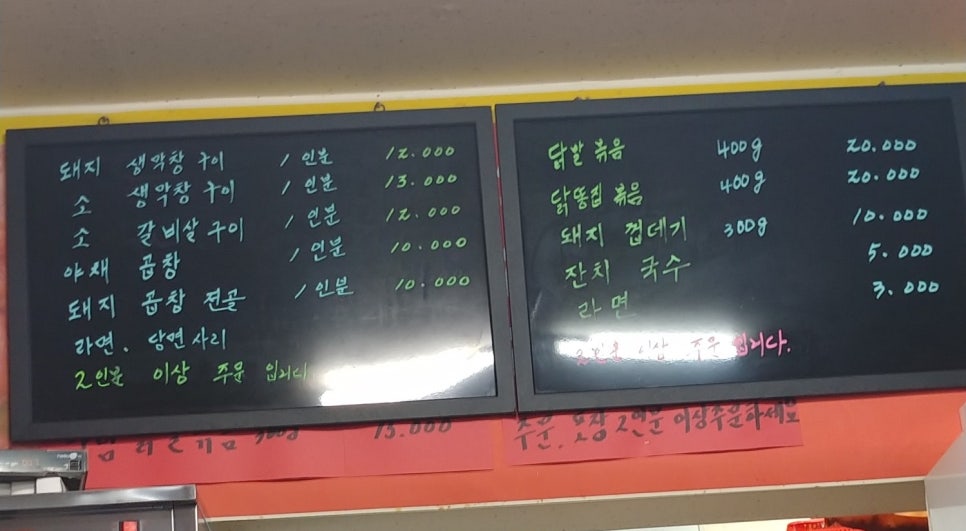 돼지 생막창 구이 1 인분 12.000
소 생막창 구이 1 인분 13.000
소 갈비살 구이 1 인분 12.000
야채 곱창 1 인분 10.000
돼지 곱창 전골 1 인분 10.000
라면. 당면사리
2인분 이상 주문 입니다
닭발 볶음 400g 20.000
닭똥집 볶음 400g 20.000
돼지 껍데기 300g 10.000
잔치 국수 5.000
라면 3.000
2인분 이상 주문 입니다.
300g 15.000
주문. 포장 2인분 이상주문하세요